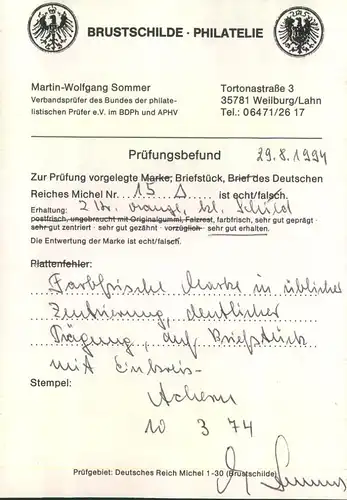 BRUSTSCHILDE · PHILATELIE
Martin-Wolfgang Sommer
Verbandsprüfer des Bundes der philate-
listischen Prüfer e.V. im BDPh und APHV
Tortonastraße 3
35781 Weilburg/Lahn
Tel.: 06471/26 17
Prüfungsbefund 29.8.1994
Zur Prüfung vorgelegte Marke, Briefstück, Brief des Deutschen
Reiches Michel Nr. 15 ist echt/falsch.
Erhaltung: 2 Kr. orange, kl. Schild
postfrisch, ungebraucht mit Originalgummi, Falzrest, farbfrisch, sehr gut geprägt ·
sehr gut zentriert · sehr gut gezähnt · vorzüglich · sehr gut erhalten.
Die Entwertung der Marke ist echt/falsch.
Plattenfehler:
Farbfrische Marke in üblicher
Zentrierung, deutlicher
Prägung, auf Briefstück
mit Einkreis-
Stempel: Achern
10 3 74
Prüfgebiet: Deutsches Reich Michel 1-30 (Brustschilde)